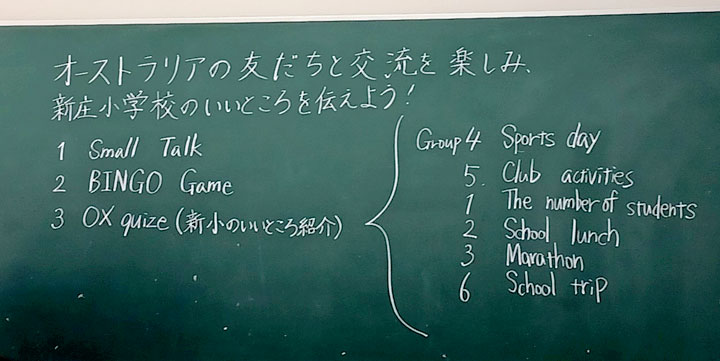 オーストラリアの友だちと交流を楽しみ、
新庄小学校のいいところを伝えよう!
1 Small Talk
2 BINGO Game
3 OX quize (新小のいいところ紹介)
Group 4 Sports day
5. Club activities
1 The number of students
2 School lunch
3 Marathon
6 School trip